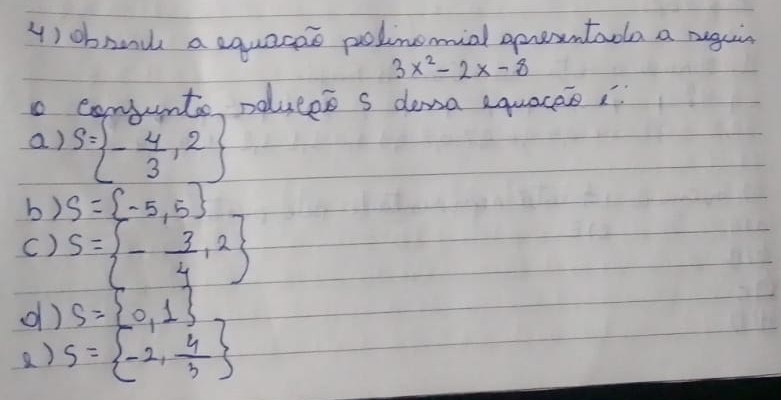 4) observe a equação polinomial apresentada a seguir
3x² - 2x - 8
o conjunto solução S dessa equação é:
a) S = {- 4/3, 2}
b) S = {-5, 5}
c) S = {- 3/4, 2}
d) S = {0, 1}
e) S = {-2, 4/3}